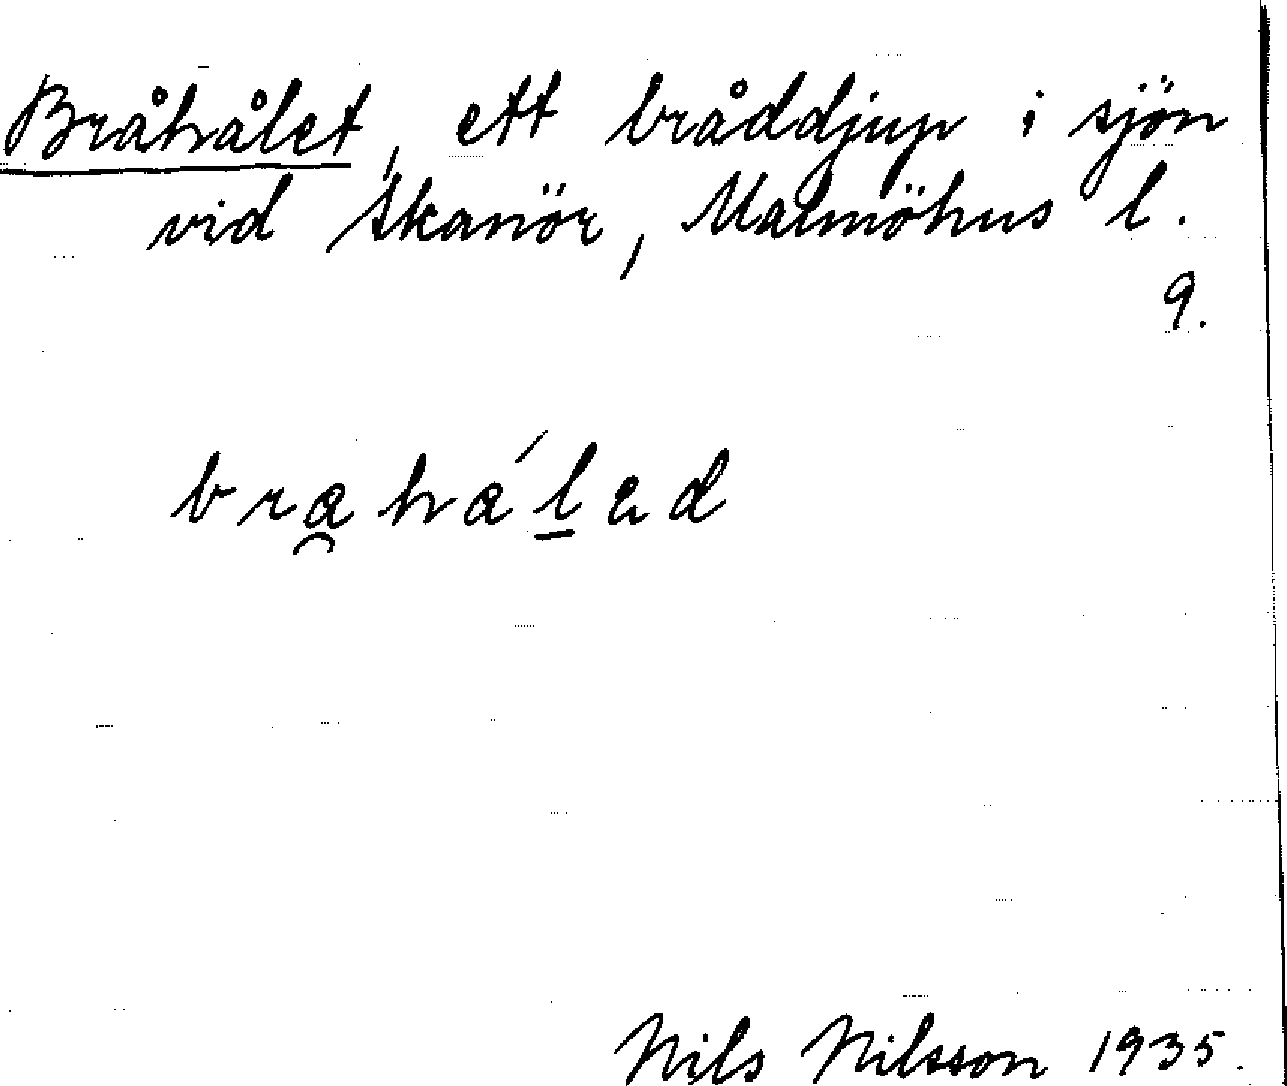 Bråhålet, ett bråddjup i sjön
vid Skanör, Malmöhus l.
9.
brahálad
Nils Nilsson 1935.